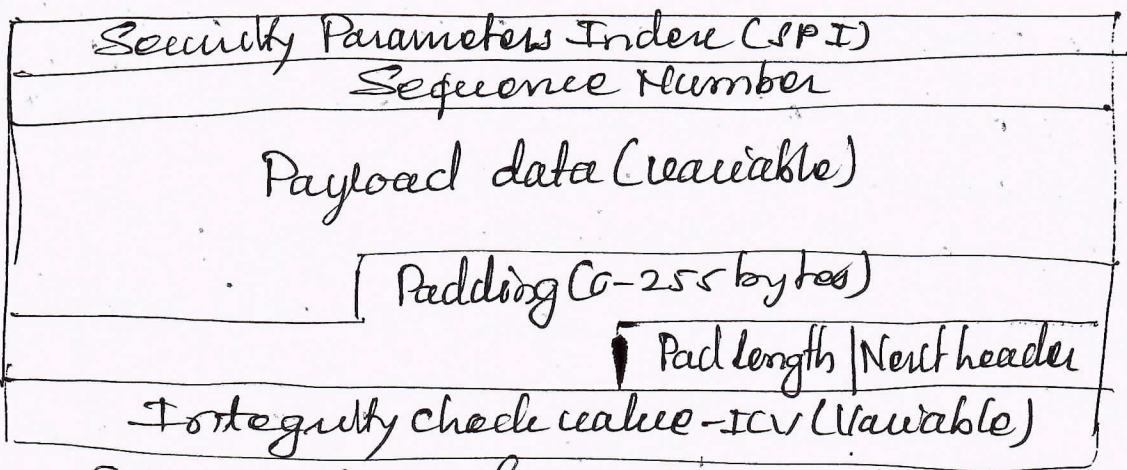 Security Parameters Index (SPI)
Sequence Number
Payload data (variable)
Padding (0-255 bytes)
Pad length | Next header
Integrity check value-ICV (Variable)